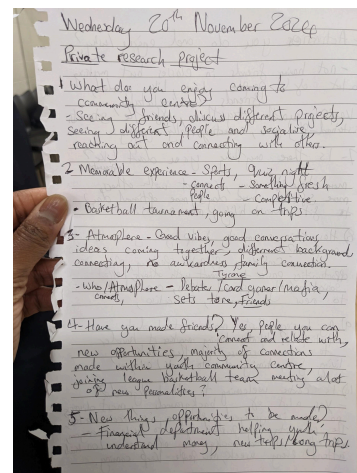 Wednesday 20th November 2024
Private research project
1 What do you enjoy coming to
community centre?
- Seeing friends, discuss different projects,
seeing different people and socialise
reaching out and connecting with others.
2 Memorable experience - Sports, quiz night
- connects people - Something fresh
- Competitive
- Basketball tournament, going on trips
3 - Atmosphere - Good vibes, good conversations
ideas coming together, different background
connecting, no awkardness family connection.
Tyrone
- Who/Atmosphere - Debates/card games/mafia,
connects, sets tone, friends
4 - Have you made friends? Yes, people you can
connect and relate with,
new opportunities, majority of connections
made within youth community centre,
joining league basketball team meeting alot
of new personalities?
5 - New things, opportunities to be made?
- Financial department helping youth
understand money, new trips/long trips.